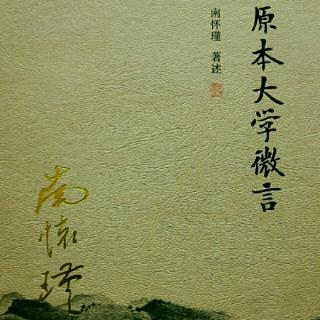 原本大学微言
南怀瑾 著述
南怀瑾